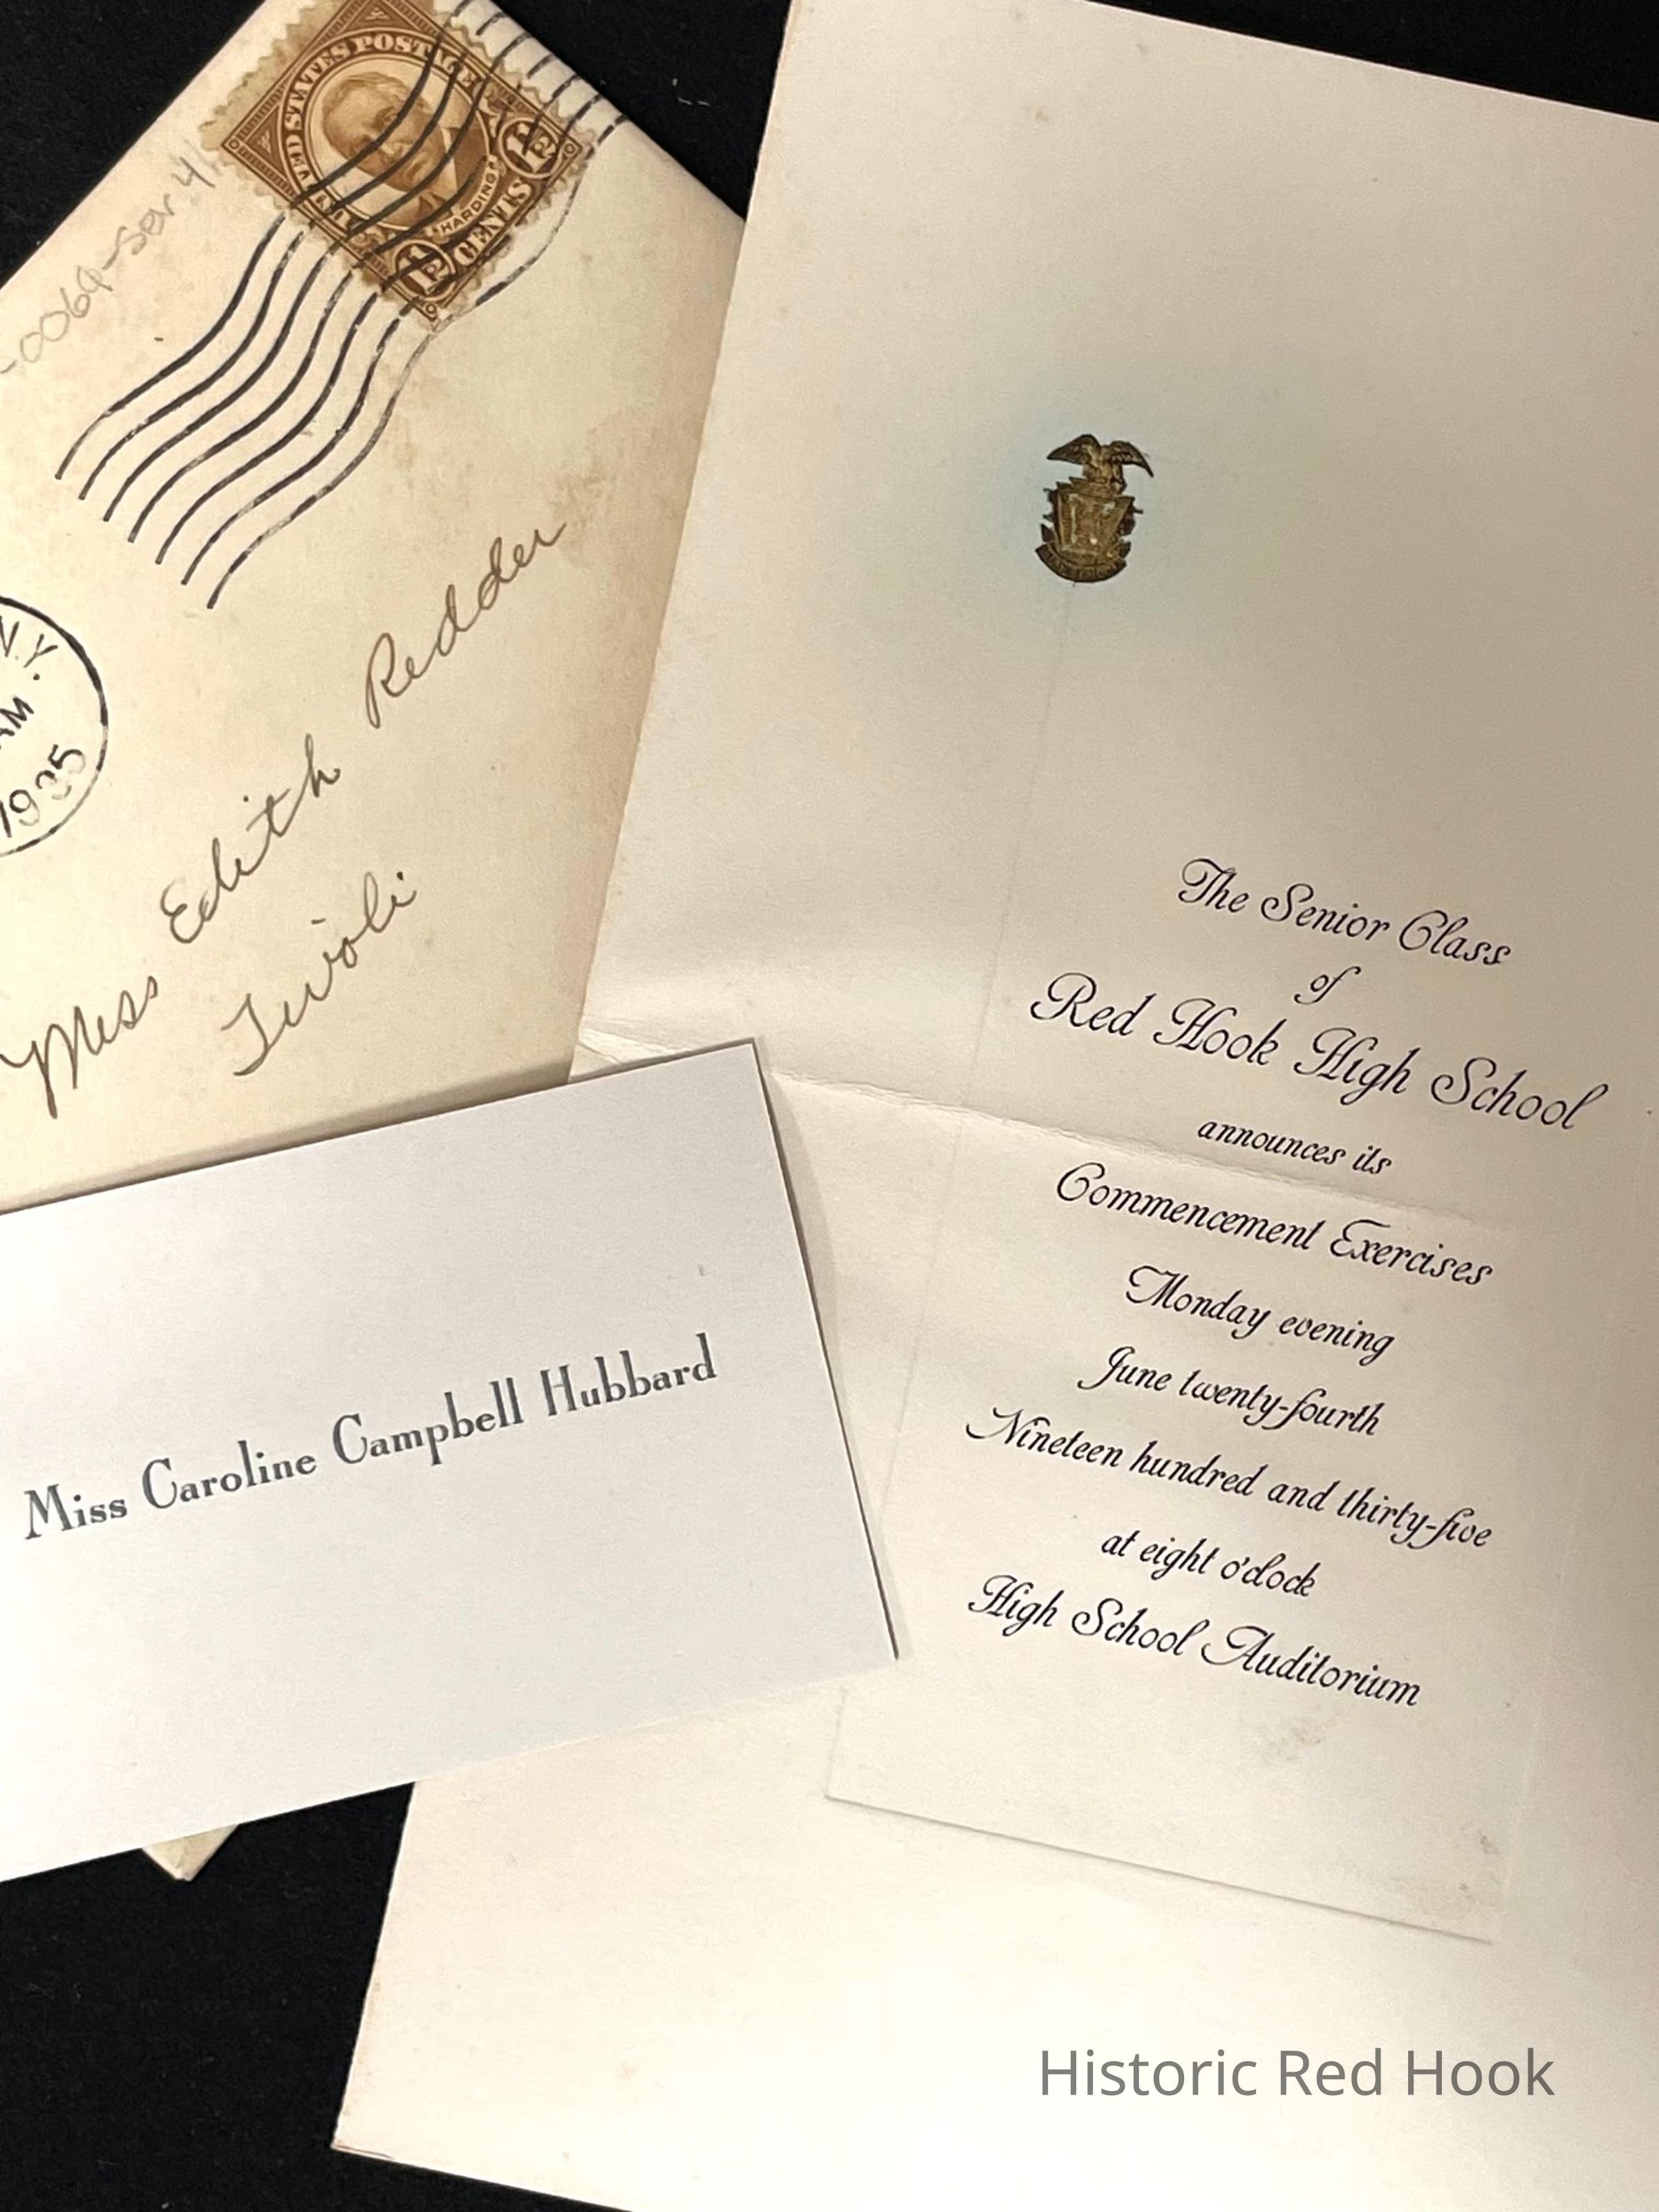 UNITED STATES POSTAGE
HARDING
1½ CENTS 1½
-0069-ser 41
N.Y.
AM
1935
Miss Edith Redder
Tivoli
Miss Caroline Campbell Hubbard
The Senior Class
of
Red Hook High School
announces its
Commencement Exercises
Monday evening
June twenty-fourth
Nineteen hundred and thirty-five
at eight o'clock
High School Auditorium
Historic Red Hook